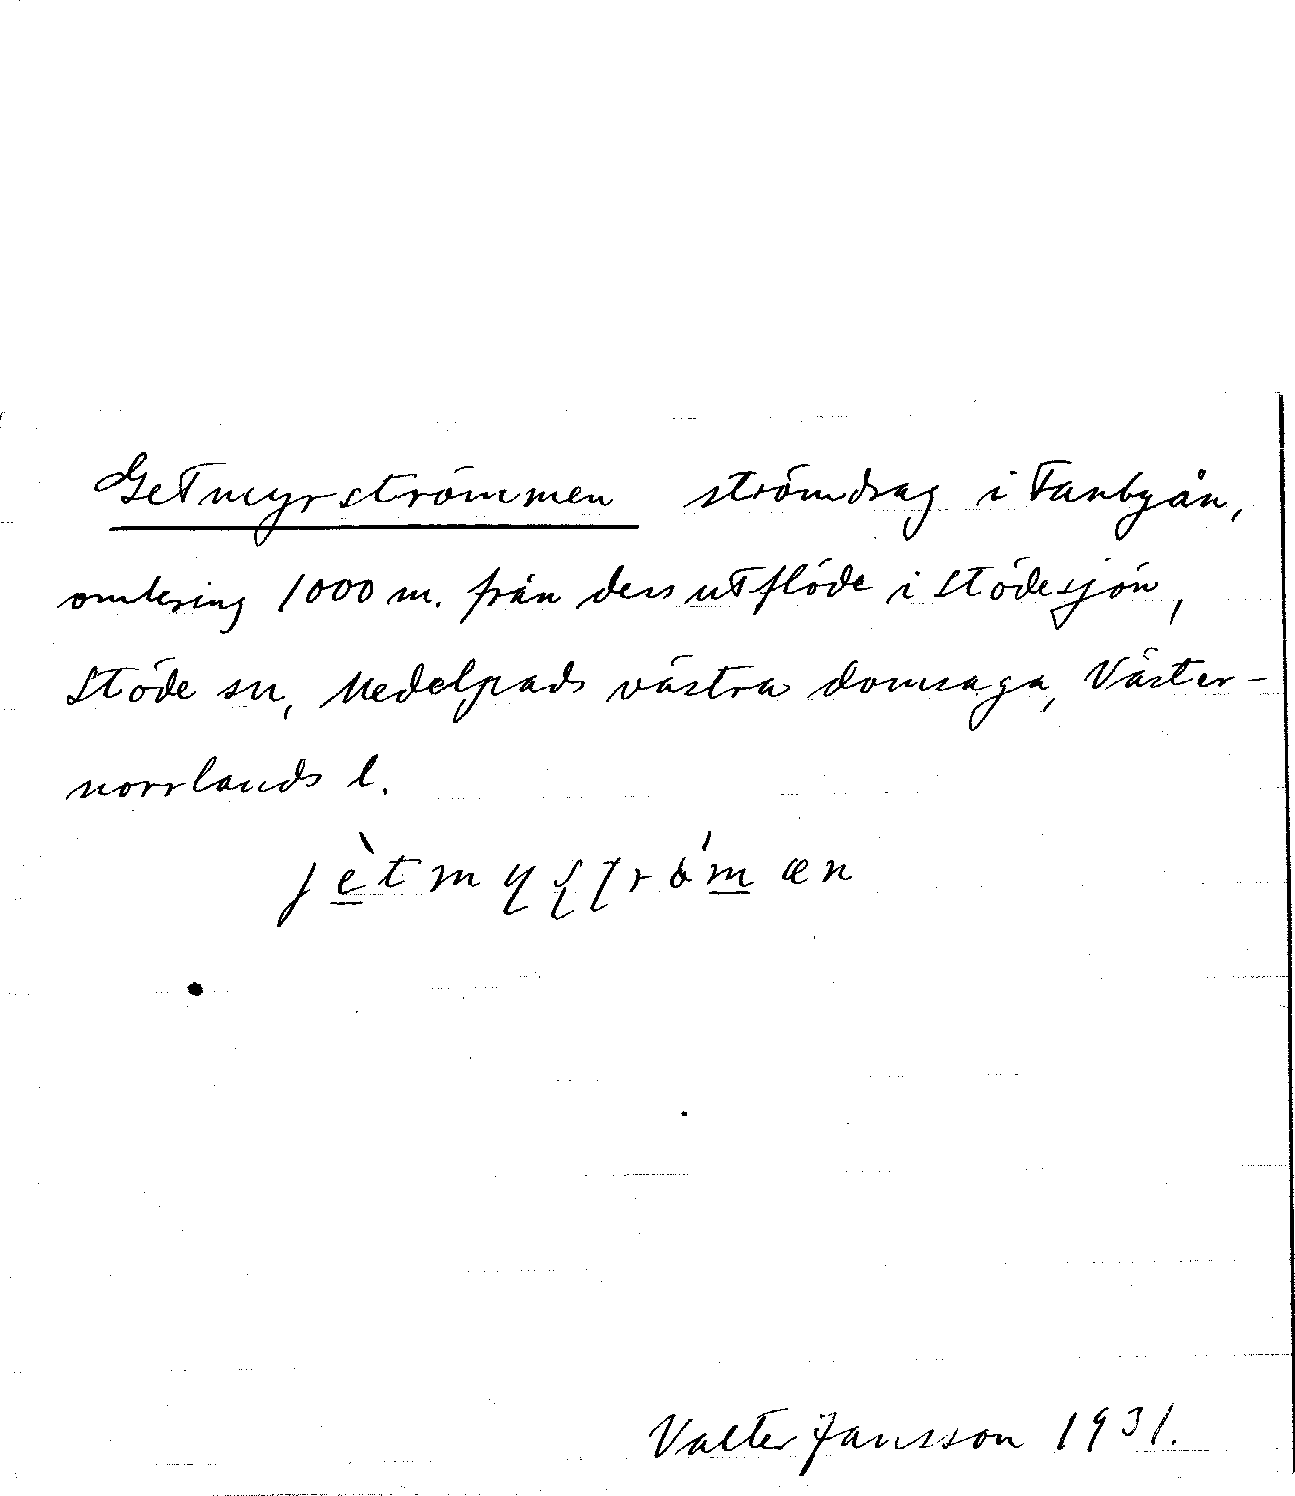 Getmyrströmmen strömdrag i Fanbyån,
omkring 1000 m. från dess utflöde i Stödesjön,
Stöde sn, Medelpads västra domsaga, Väster-
norrlands l.
jètmyʂʈrǿmæn
Valter Jansson 1931.